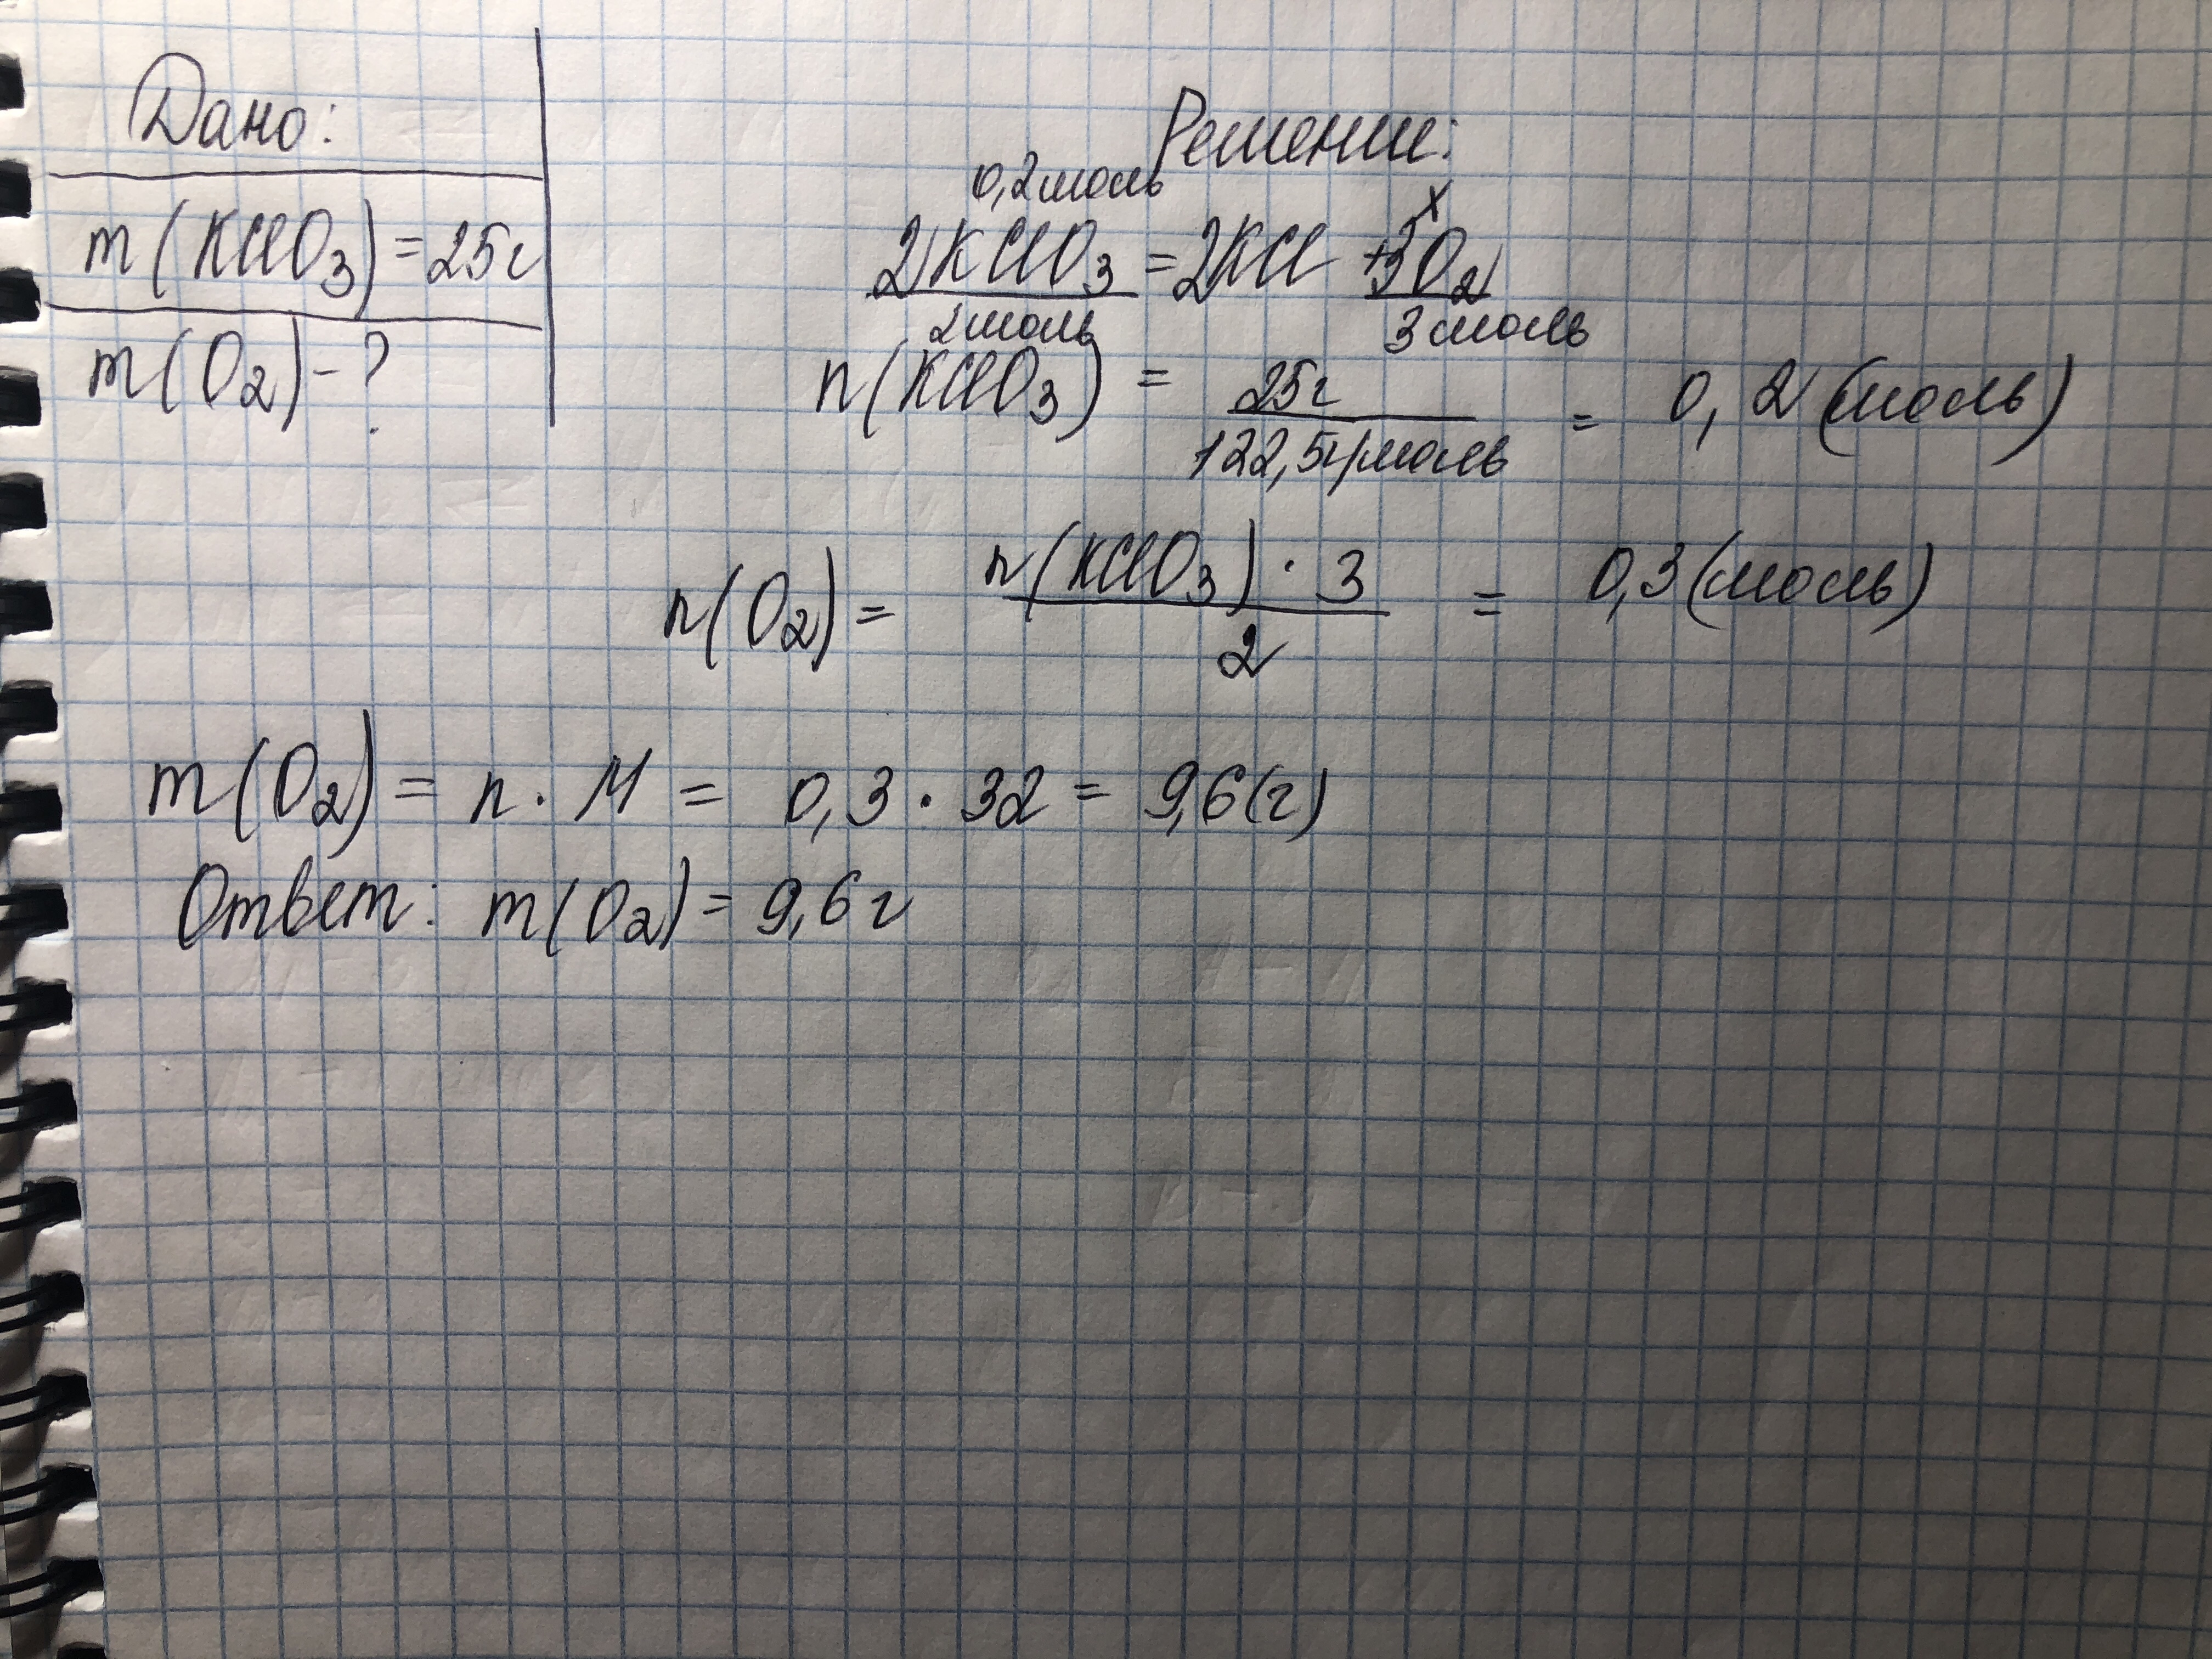 Дано:
m(KClO3)=25г
m(O2)-?
Решение:
0,2моль x
2KClO3=2KCl+3O2
2моль 3моль
n(KClO3) = 25г / 122,5г/моль = 0,2(моль)
n(O2)= n(KClO3)·3 / 2 = 0,3(моль)
m(O2)= n·M = 0,3·32= 9,6(г)
Ответ: m(O2)=9,6г